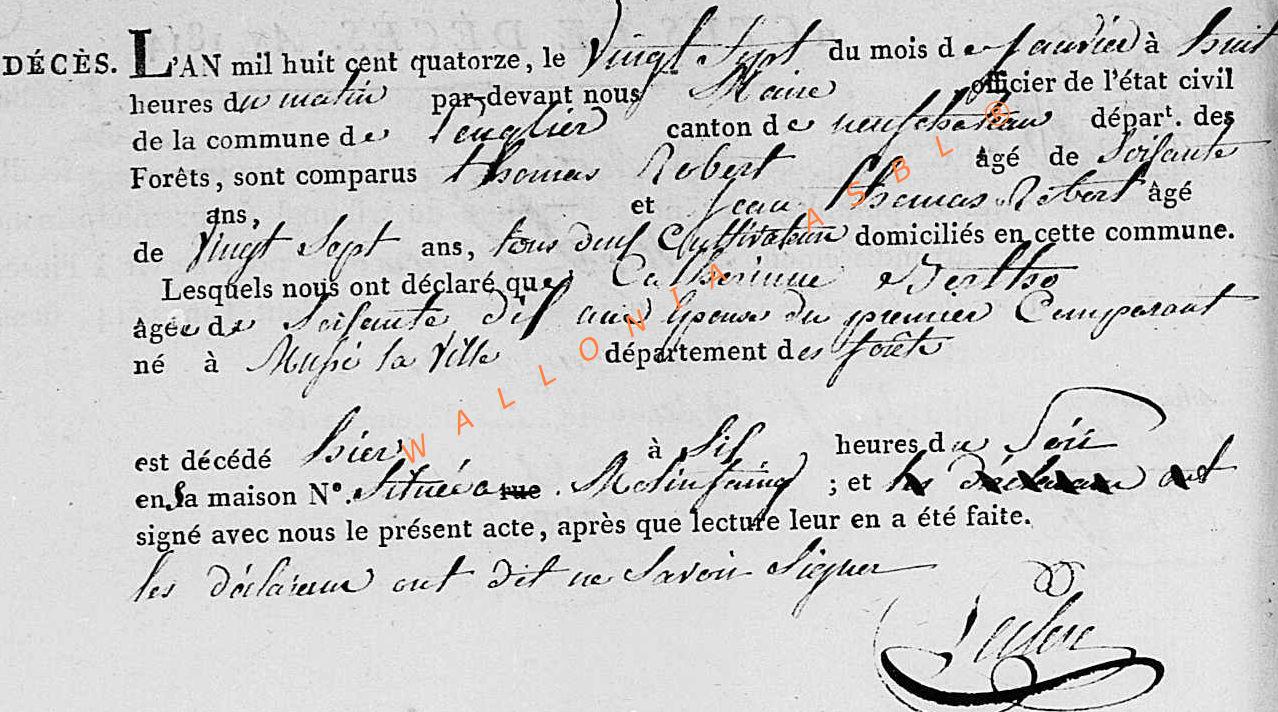 DÉCÈS. L'AN mil huit cent quatorze, le Vingt Sept du mois de Janvier à huit
heures du matin par-devant nous Maire officier de l'état civil
de la commune de Longlier canton de neufchateau départ. des
Forêts, sont comparus thomas Robert âgé de Soisante
ans, et Jean Thomas Robert âgé
de Vingt Sept ans, tous deux Cultivateur domiciliés en cette commune.
Lesquels nous ont déclaré que Catherinne
âgée de Soisante dix ans Epouse du premier Comparant
né à Mussi la Ville département des forêts
est décédé hier à Six heures du Soir
en sa maison N°. Située a rue. Molinfaing ; et les déclarans ont
signé avec nous le présent acte, après que lecture leur en a été faite.
les déclarans ont dit ne Savoir Signer
WALLONIA ASBL ®